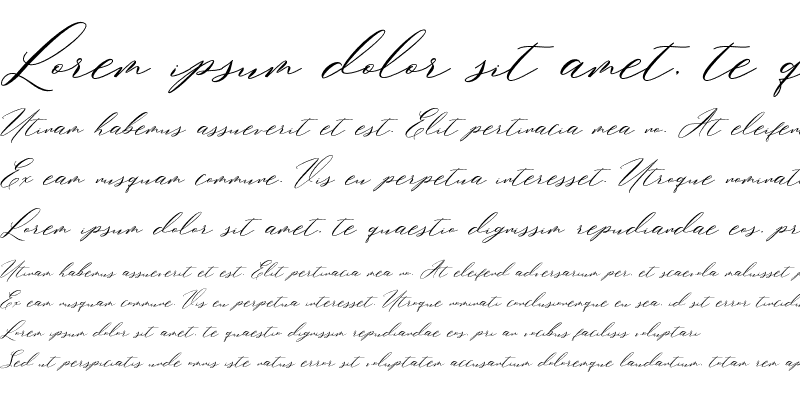 Lorem ipsum dolor sit amet, te q
Utinam habemus assueverit et est. Elit pertinacia mea no. At eleifen
Ex eam nusquam commune. Vis eu perpetua interesset. Utroque nominati
Lorem ipsum dolor sit amet, te quaestio dignissim repudiandae eos, pri
Utinam habemus assueverit et est. Elit pertinacia mea no. At eleifend adversarium per, et scaevola maluisset p
Ex eam nusquam commune. Vis eu perpetua interesset. Utroque nominati conclusionemque eu sea, id sit error tincidu
Lorem ipsum dolor sit amet, te quaestio dignissim repudiandae eos, pri an vocibus facilisis voluptari
Sed ut perspiciatis unde omnis iste natus error sit voluptatem accusantium doloremque laudantium, totam rem ap